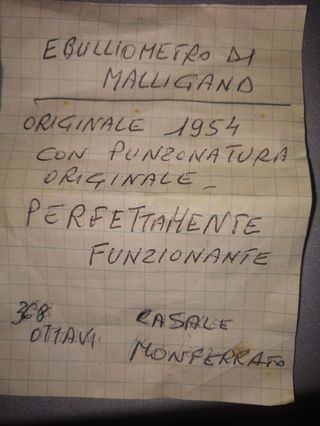 EBULLIOMETRO DI
MALLIGAND
ORIGINALE 1954
CON PUNZONATURA
ORIGINALE -
PERFETTAMENTE
FUNZIONANTE
368
OTTAVI
CASALE
MONFERRATO